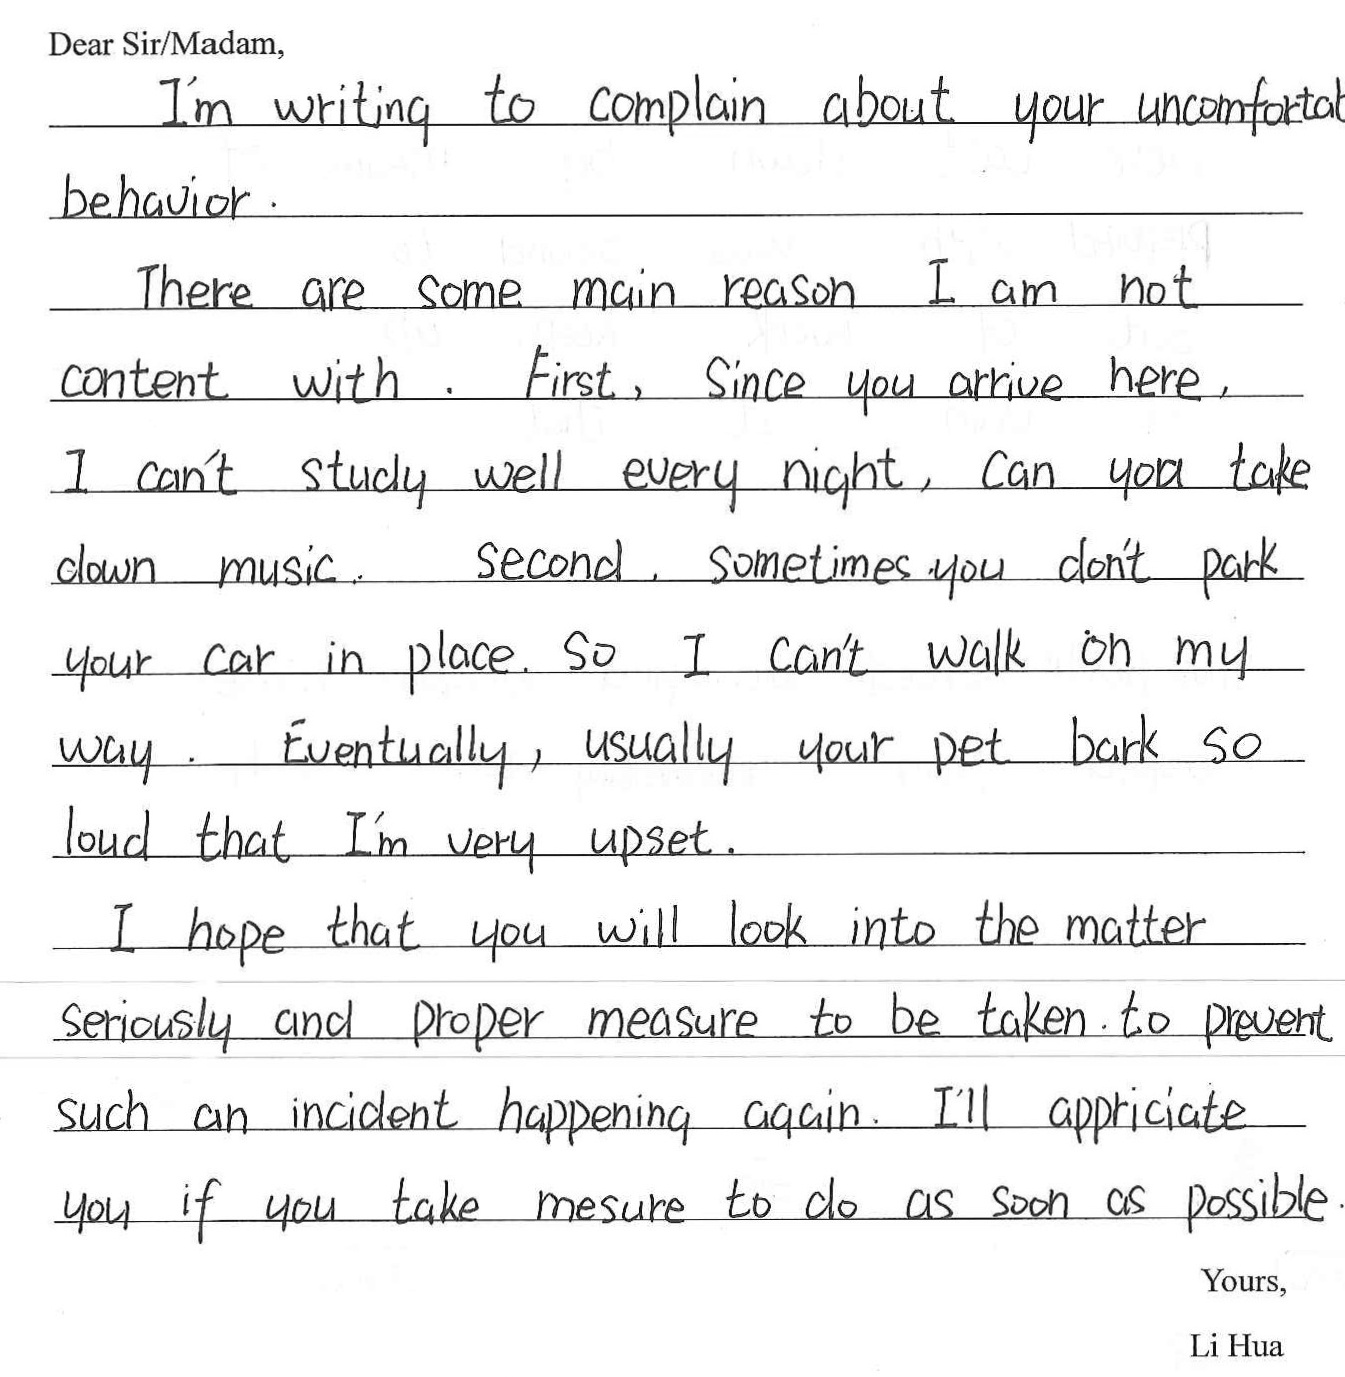 Dear Sir/Madam,
I'm writing to complain about your uncomfortab
behavior.
There are some main reason I am not
content with. First, Since you arrive here,
I can't study well every night, Can you take
down music. Second. Sometimes you don't park
your car in place. So I can't walk on my
way. Eventually, usually your pet bark so
loud that I'm very upset.
I hope that you will look into the matter
seriously and proper measure to be taken. to prevent
such an incident happening again. I'll appriciate
you if you take mesure to do as soon as possible.
Yours,
Li Hua